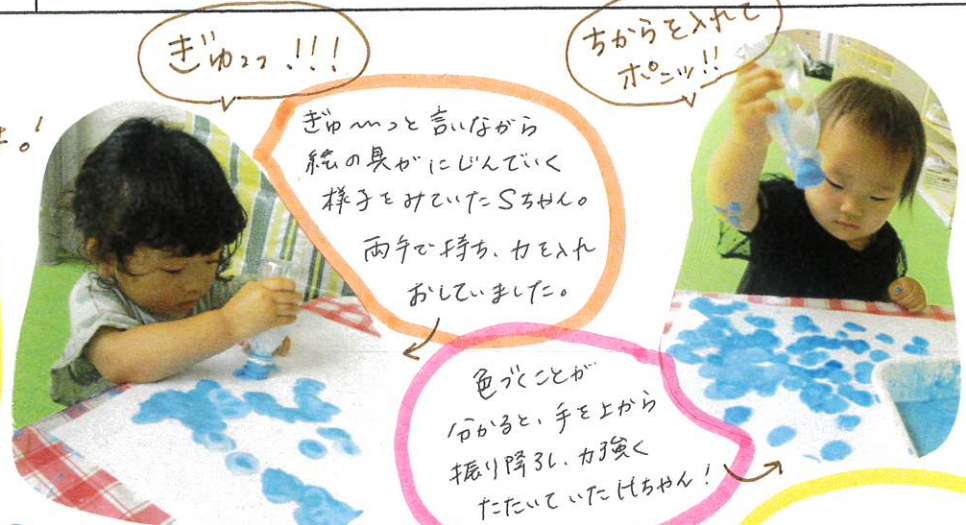 ぎゅっっ!!!
ちからを入れて
ポンッ!!
ぎゅ〜っと言いながら
絵の具がにじんでいく
様子をみていたSちゃん。
両手で持ち、力を入れ
おしていました。
色づくことが
分かると、手を上から
振り降ろし、力強く
たたいていたHちゃん!